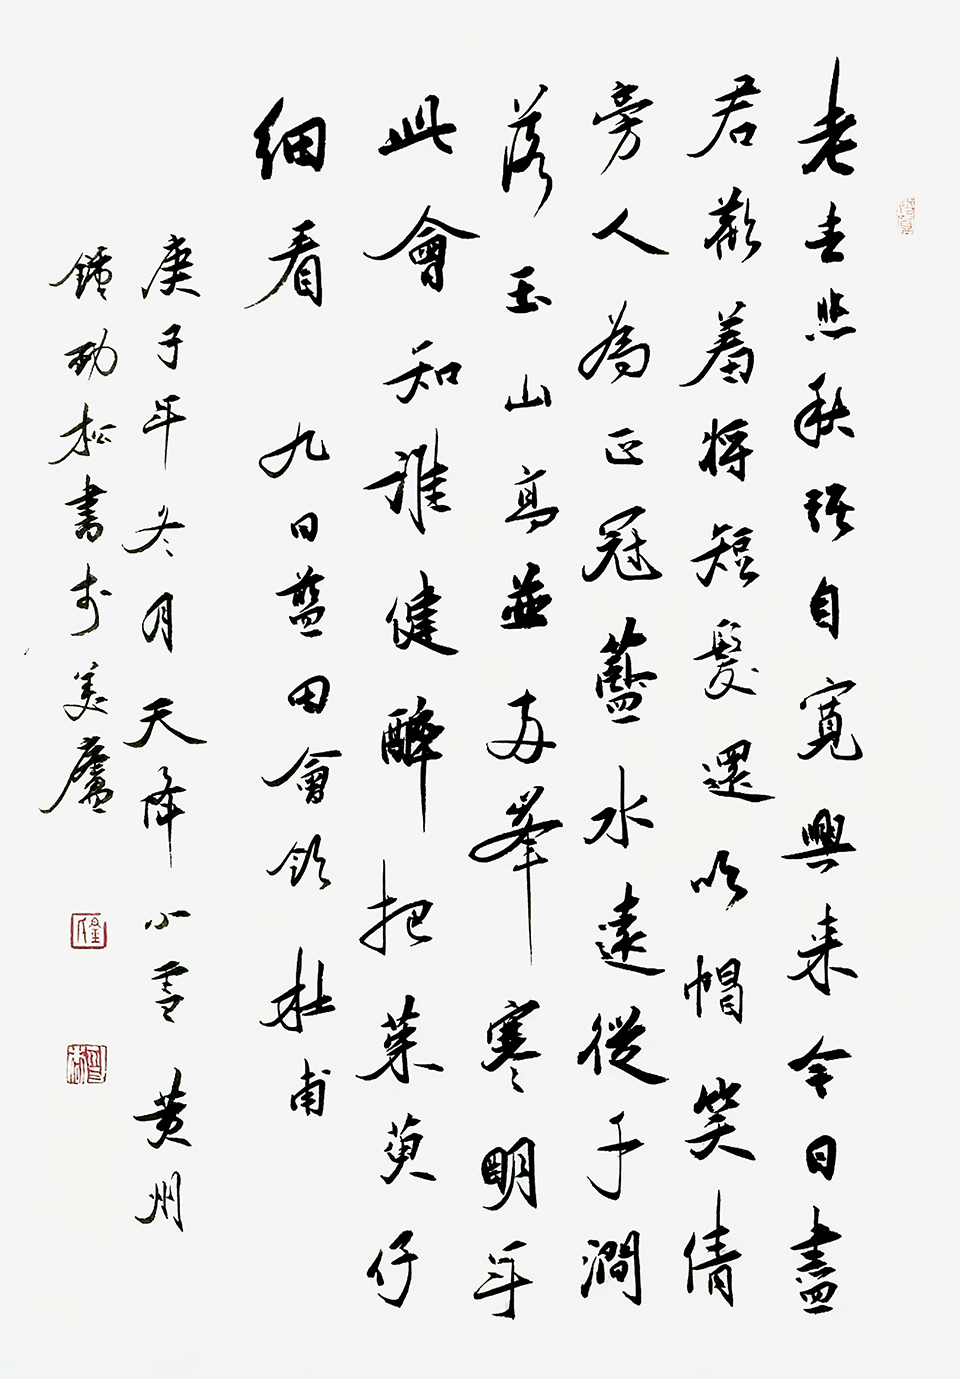 老去悲秋强自寬興来今日盡
君歡羞將短髮還吹帽笑倩
旁人為正冠藍水遠從千澗
落玉山高並兩峯寒明年
此會知誰健醉把茱萸仔
細看 九日藍田會飲 杜甫
庚子年冬月天降小雪黄州
鍾劲松書於美廬